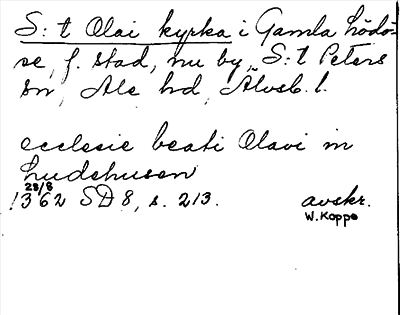 S:t Olai kyrka i Gamla Lödö-
se, f. stad, nu by, S:t Peters
sn, Ale hd, Älvsb. l.
ecclesie beati Olavi in
Ludehusen
28/8
1362 SD 8, s. 213. avskr.
W. Koppe